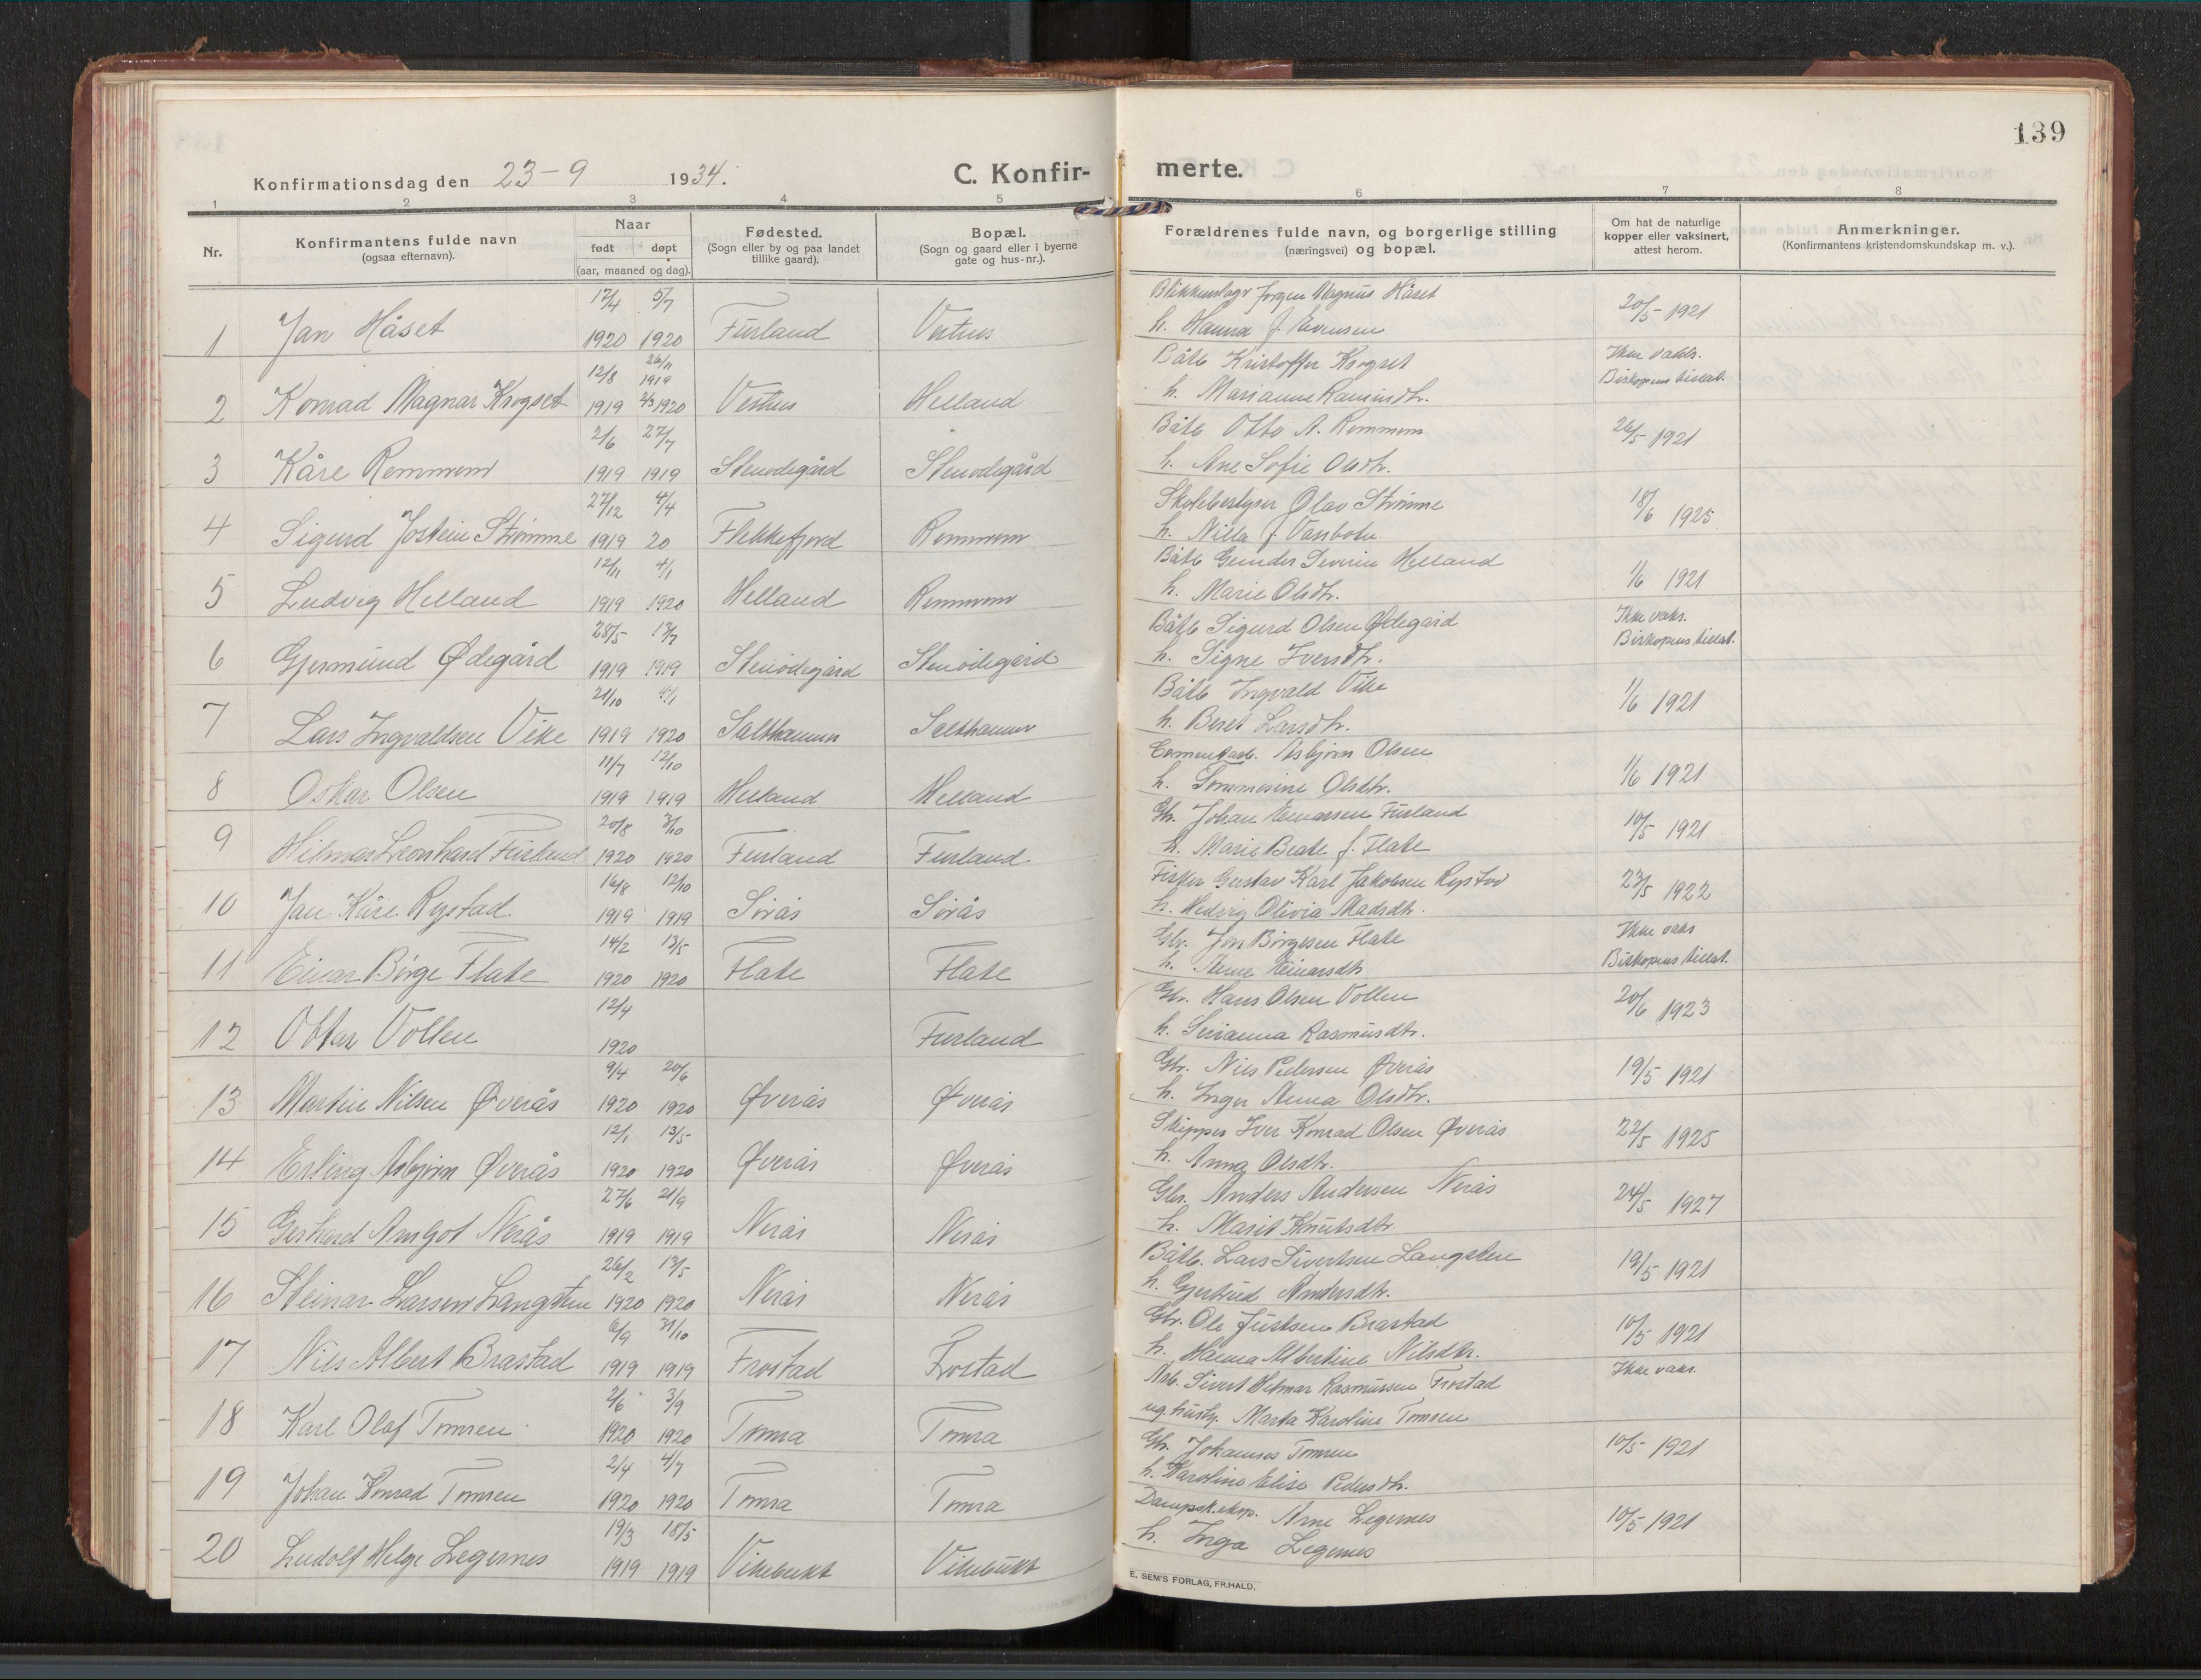 139
Konfirmationsdag den 23-9 1934.
C. Konfir- merte.
1 2 3 4 5 6 7 8
Nr.
Konfirmantens fulde navn
(ogsaa efternavn).
Naar
født døpt
(aar, maaned og dag).
Fødested.
(Sogn eller by og paa landet
tillike gaard).
Bopæl.
(Sogn og gaard eller i byerne
gate og hus-nr.).
Forældrenes fulde navn, og borgerlige stilling
(næringsvei) og bopæl.
Om hat de naturlige
kopper eller vaksinert,
attest herom.
Anmerkninger.
(Konfirmantens kristendomskundskap m. v.).
17/4 5/7 Blikkenslagr Jørgen Magnus Håset
1 Jan Håset 1920 1920 Furland Vestnes h. Hanna f. Evensen 20/5 1921
12/8 26/11 1919 Båtb Kristoffer Krogset Ikke vaks.
2 Konrad Magnar Krogset 1919 2/3 1920 Vestnes Helland h. Marianne Biskopens tillat.
2/6 27/7 Båtb Otto A. Remmem
3 Kåre Remmem 1919 1919 Stenødegård Stenødegård h. Ane Sofie Olsdtr. 26/5 1921
27/12 4/4 Skolebestyrer Olav Strømme
4 Sigurd Jostein Strømme 1919 20 Flekkefjord Remmem h. Nilla f. 18/6 1925
12/11 4/1 Båtb Severin Helland
5 Ludvig Helland 1919 1920 Helland Remmem h. Marie Olsdtr. 1/6 1921
28/5 13/7 Båtb Sigurd Olsen Ødegård Ikke vaks.
6 Gjermund Ødegård 1919 1919 Stenødegård Stenødegård h. Signe Iversdtr. Biskopens tillat.
21/10 4/1 Båtb Ingvald Vike
7 Lars Ingvaldsen Vike 1919 1920 Salthammer Salthammer h. Beret Larsdtr. 1/6 1921
11/7 12/10 Cementarb. Asbjørn Olsen
8 Oskar Olsen 1919 1919 Helland Helland h. Tommesine Olsdtr. 1/6 1921
20/8 3/10 Gbr. Johan Einarsen Furland
9 Hilmar Leonhard Furland 1920 1920 Furland Furland. h. Marie Beate f. Flate 10/5 1921
16/8 12/10 Fisker Gustav Karl Jakobsen Rystad
10 Jan Kåre Rystad 1919 1919 Sørås Sørås h. Hedvig Olivia Madsdtr. 23/5 1922
14/2 13/5 Gbr. Jon Børgesen Flate Ikke vaks
11 Einar Børge Flate 1920 1920 Flate Flate h. Anne Einarsdtr Biskopens tillat.
12/4 Gbr. Hans Olsen Vollen
12 Ottar Vollen 1920 Furland h. Serianna Rasmusdtr. 20/6 1923
9/4 20/6 Gbr. Nils Pedersen Øverås
13 Martin Nilsen Øverås 1920 1920 Øverås Øverås h. Inger Anna Olsdtr. 19/5 1921
12/1 13/5 Skipper Iver Konrad Olsen Øverås
14 Erling Asbjørn Øverås 1920 1920 Øverås Øverås h. Anna Olsdtr. 22/5 1925
27/6 21/9 Gbr. Anders Andersen Nerås
15 Gerhard Arngot Nerås 1919 1919 Nerås Nerås h. Marit Knutsdtr. 24/5 1927
26/2 13/5 Båtb. Lars Sivertsen Langsten
16 Steinar Larsen Langsten 1920 1920 Nerås Nerås h. Gjertrud Andersdtr. 19/5 1921
6/9 31/10 Gbr. Ole Justsen Brastad
17 Nils Albert Brastad 1919 1919 Frostad Frostad h. Hanna Albertine Nilsdtr. 10/5 1921
2/6 3/9 Arb. Sivert Hilmar Rasmussen Frostad Ikke vaks.
18 Karl Olaf Tomren 1920 1920 Tomra Tomra ug. husby. Marta Karoline Tomren
2/4 4/7 Gbr. Johannes Tomren
19 Johan Konrad Tomren 1920 1920 Tomra Tomra h. Karoline Elise Pedersdtr. 10/5 1921
19/3 18/5 Dampsk.eksp. Arne Legernes
20 Ludolf Helge Legernes 1919 1919 Vikebukt Vikebukt h. Inga Legernes 10/5 1921
E. SEM'S FORLAG, FR.HALD.